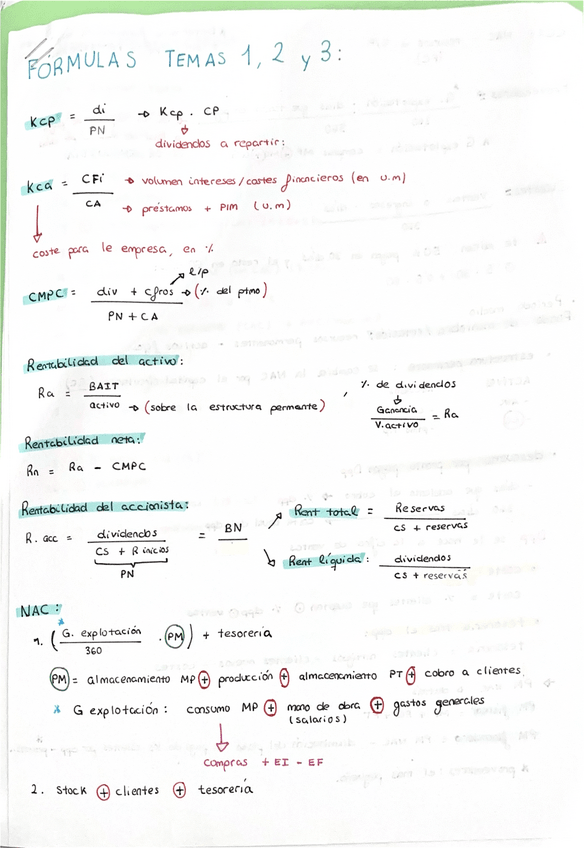 FÓRMULAS TEMAS 1, 2 y 3:
Kcp = di / PN → Kcp . CP
dividendos a repartir:
Kca = CFi / CA → volumen intereses/costes financieros (en u.m)
→ préstamos + PIM (u.m)
coste para le empresa, en %
l/p
CMPC = div + cfros / PN + CA → (% del ptmo)
Rentabilidad del activo:
Ra = BAIT / activo → (sobre la estructura permante) , % de dividendos
Ganancia / V.activo = Ra
Rentabilidad neta:
Rn = Ra - CMPC
Rentabilidad del accionista:
R. acc = dividendos / CS + R inicios = BN
PN
Rent total = Reservas / CS + reservas
Rent líquida: dividendos / CS + reservas
NAC:
1. (G. explotación / 360 . PM) + tesorería
PM = almacenamiento MP + producción + almacenamiento PT + cobro a clientes
* G explotación: consumo MP + mano de obra + gastos generales
(salarios)
compras + EI - EF
2. Stock + clientes + tesorería